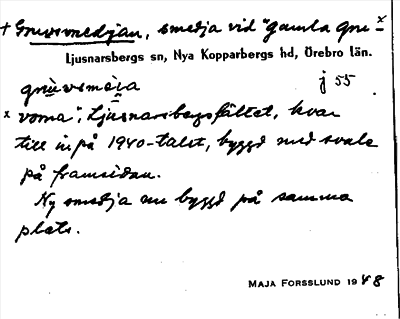 + Gruvsmedjan, smedja vid "gamla gru- x
Ljusnarsbergs sn, Nya Kopparbergs hd, Örebro län.
j 55
x vorna", Ljusnarsbergsfältet, kvar
till in på 1940-talet, byggd med svale
på framsidan.
Ny smedja nu byggd på samma
plats.
MAJA FORSSLUND 1948